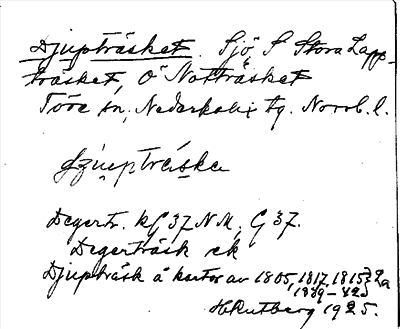 Djupträsket. Sjö, S Stora Lapp-
träsket, Ö Notträsket
Töre sn, Nederkalix tg. Norrb. l.
Degertr. kG 37 N M, G 37.
Degerträsk ek
Djupträsk å kartor av 1805, 1817, 1815
1839-42
H Rutberg 1925.